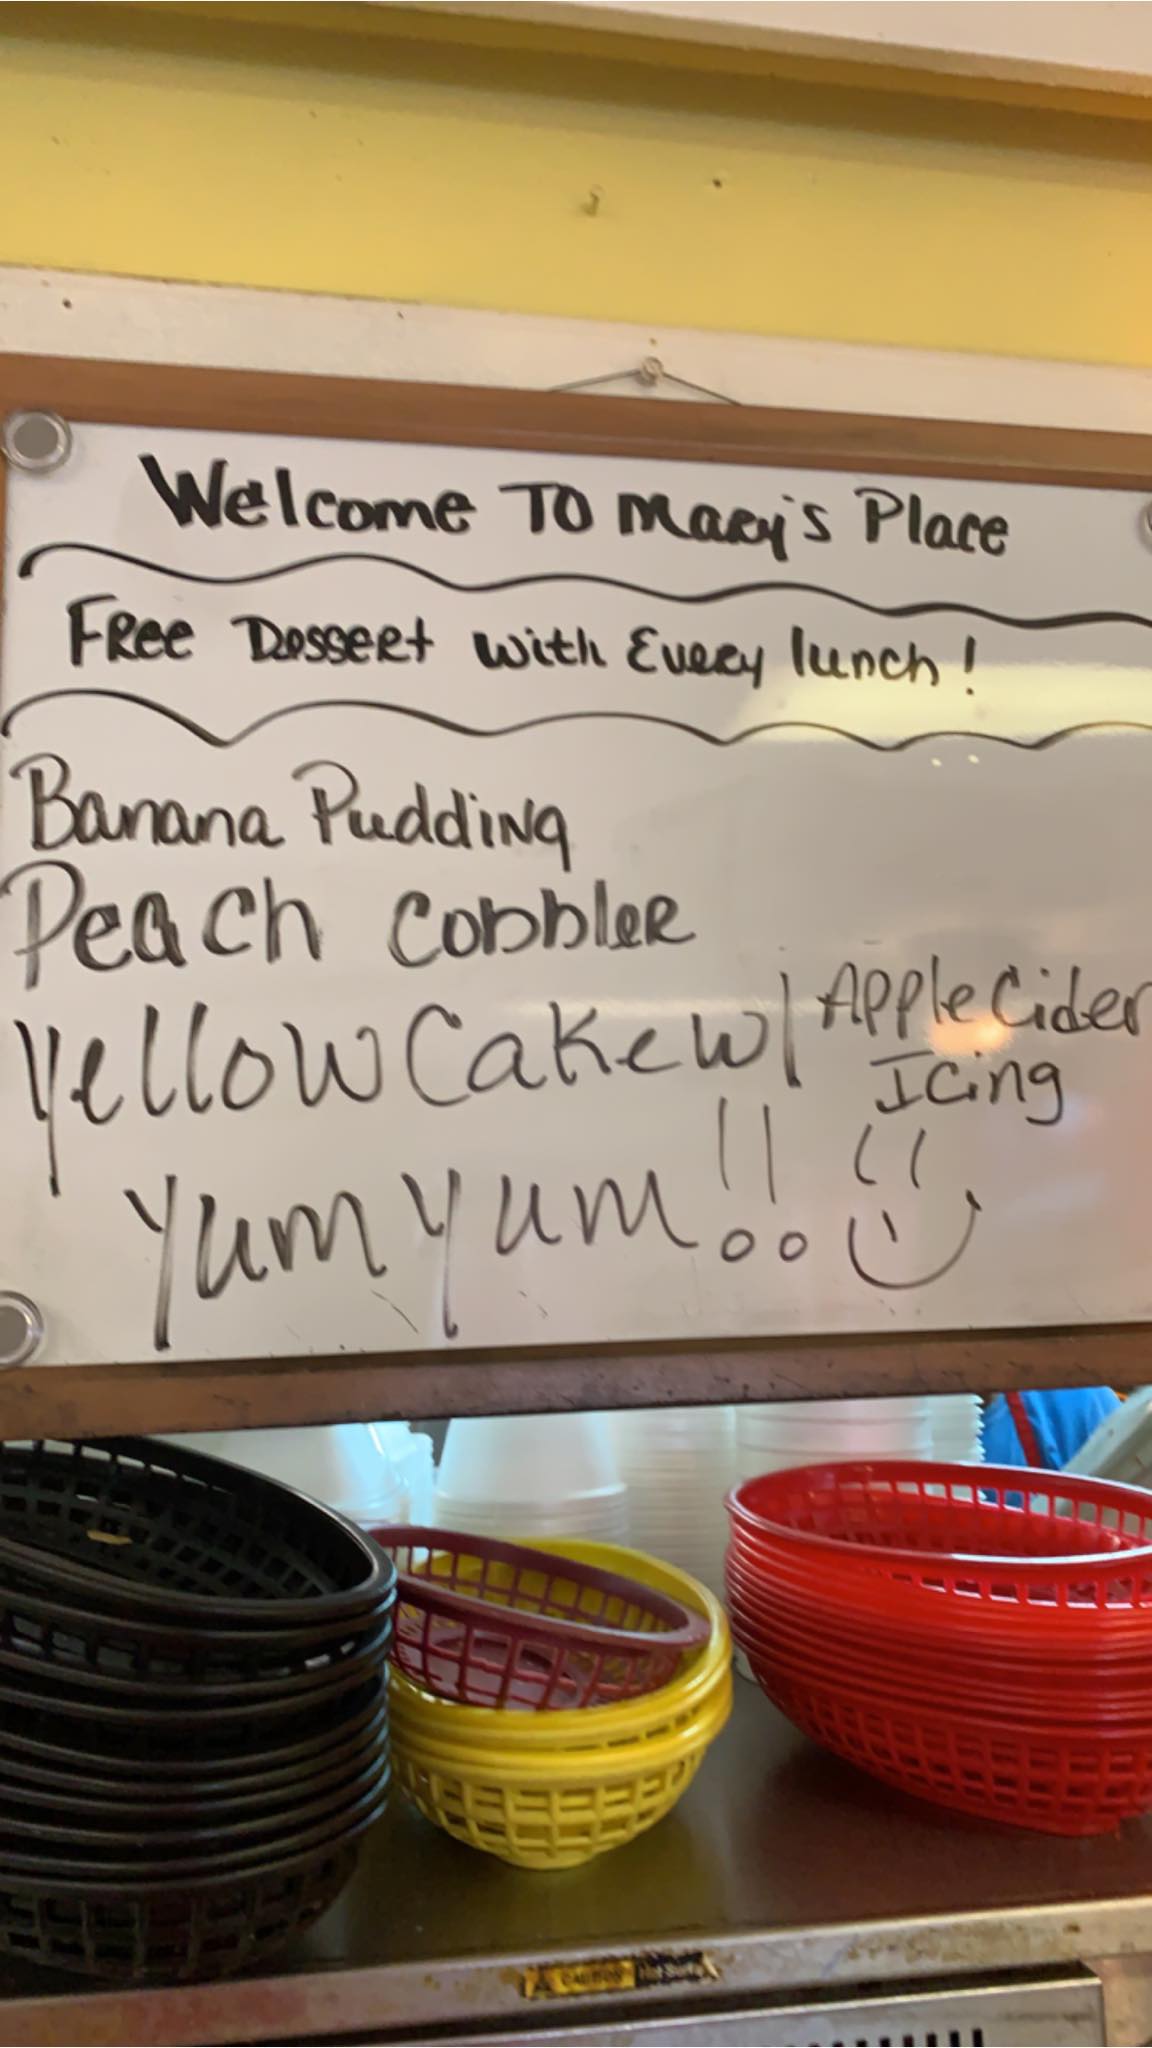 Welcome TO Mary's Place
Free Dessert with Every lunch!
Banana Pudding
Peach Cobbler
Yellow Cake w/ Apple Cider
Icing
Yum Yum!!
CAUTION